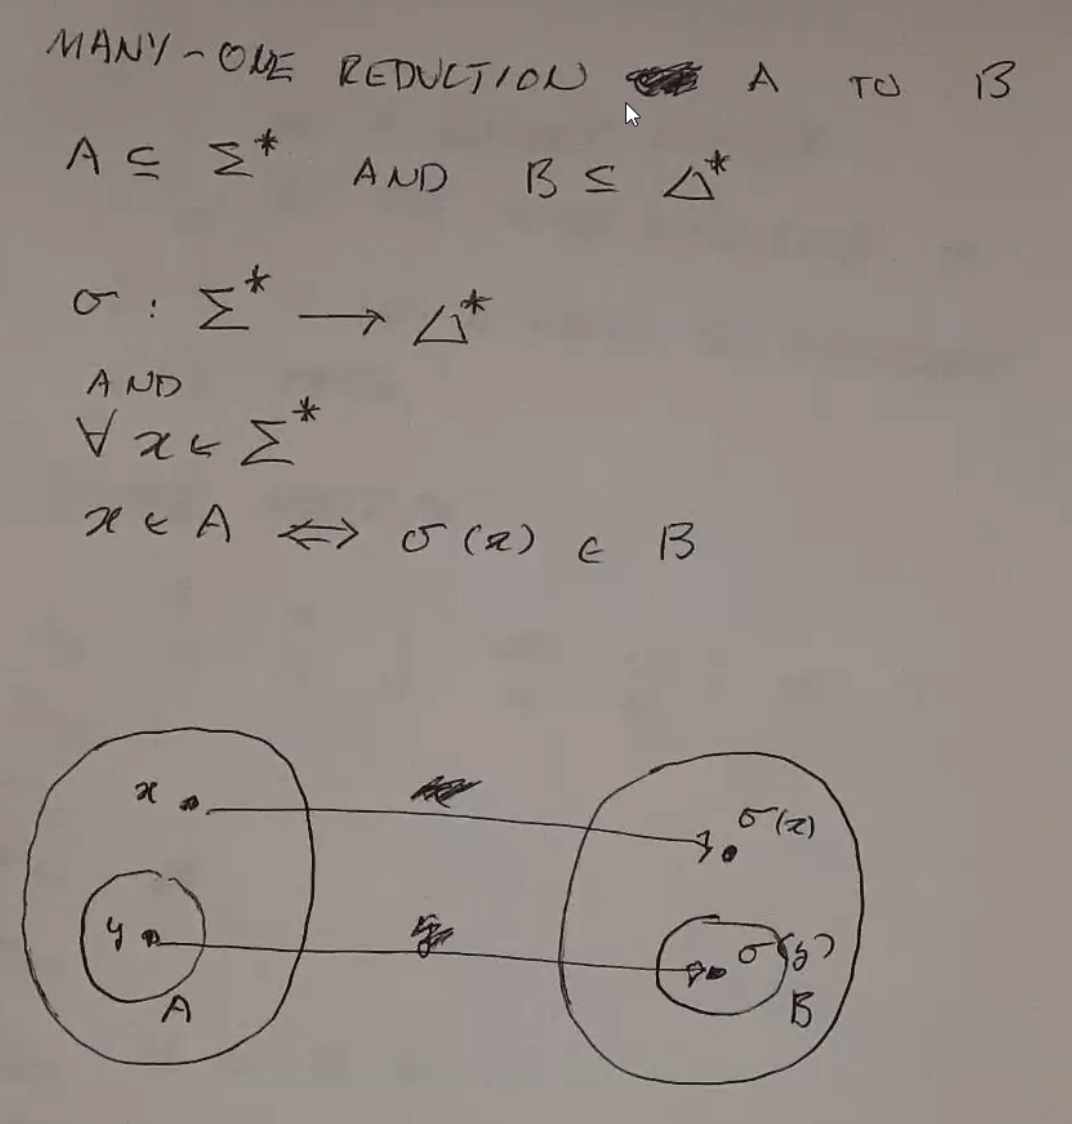 MANY-ONE REDUCTION A TO B
A ⊆ Σ* AND B ⊆ Δ*
σ : Σ* → Δ*
AND
∀ x ∈ Σ*
x ∈ A ⇔ σ(x) ∈ B
x σ(x)
y σ(y)
A B